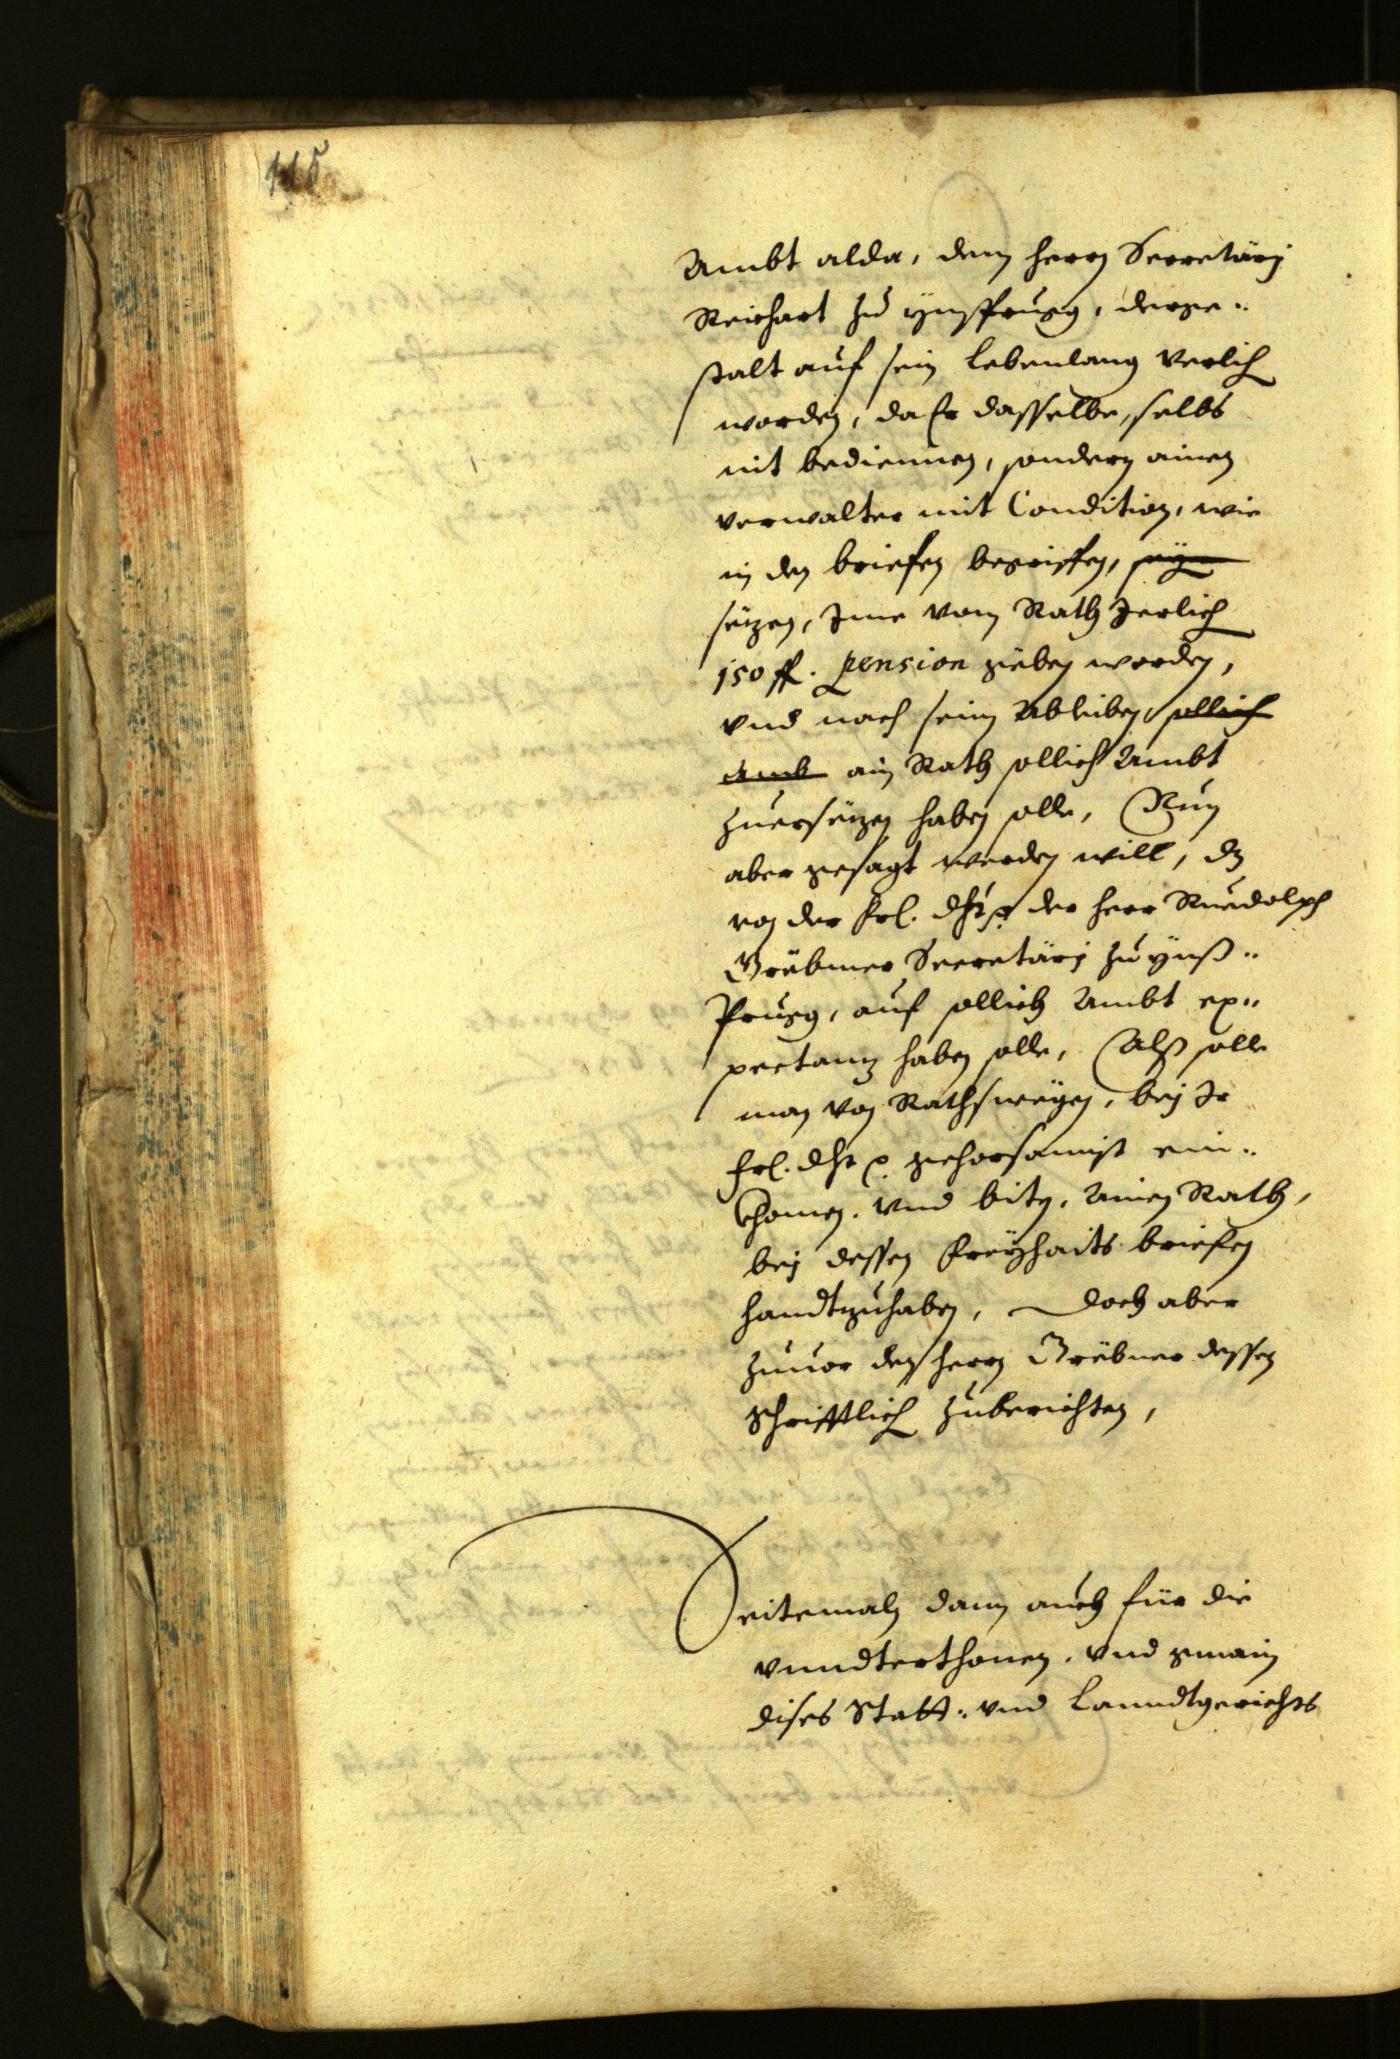 115
Ambt alda, dem herrn Secretärj
Reichart zu ynsprugg, derge„
stalt auf sein Lebenlang verlich
worden, da Er dasselbe, selbs
nit bediennen, sondern ainen
verwalter mit Condition, wie
in den briefen begriffen,
sëzen, Ime vom Rath Jerlich
150 fl. pension gëben worden,
vnd nach seim Ableiben, sollich
Amb ain Rath sollich Ambt
zuersëzen haben solle, Nun
aber gesagt werden will, dz
von der Frl. dht der herr Ruedolph
Grëbmer Secretärj zu ynß„
Prugg, auf sollich Ambt ex„
pectanz haben solle, Alß solle
man von Rathswëgen, bej Jr
Frl. dht gehorsamist ein„
khomen, vnd biten, Ainen Rath,
bej dessen Freyhaits briefen
handtzuhaben, Doch aber
zuuor den herrn Grëbmer dessen
schrifftlich zuberichten,
Seitemaln dann auch für die
vnndterthonen, vnd gmain
dises Statt„ vnd Lanndtgerichts